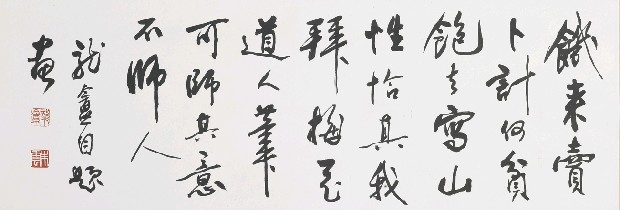 饑来賣
卜計何貧
飽去寫山
性恰真我
拜梅花
道人筆
可師其意
不師人
龍盦自題
畫